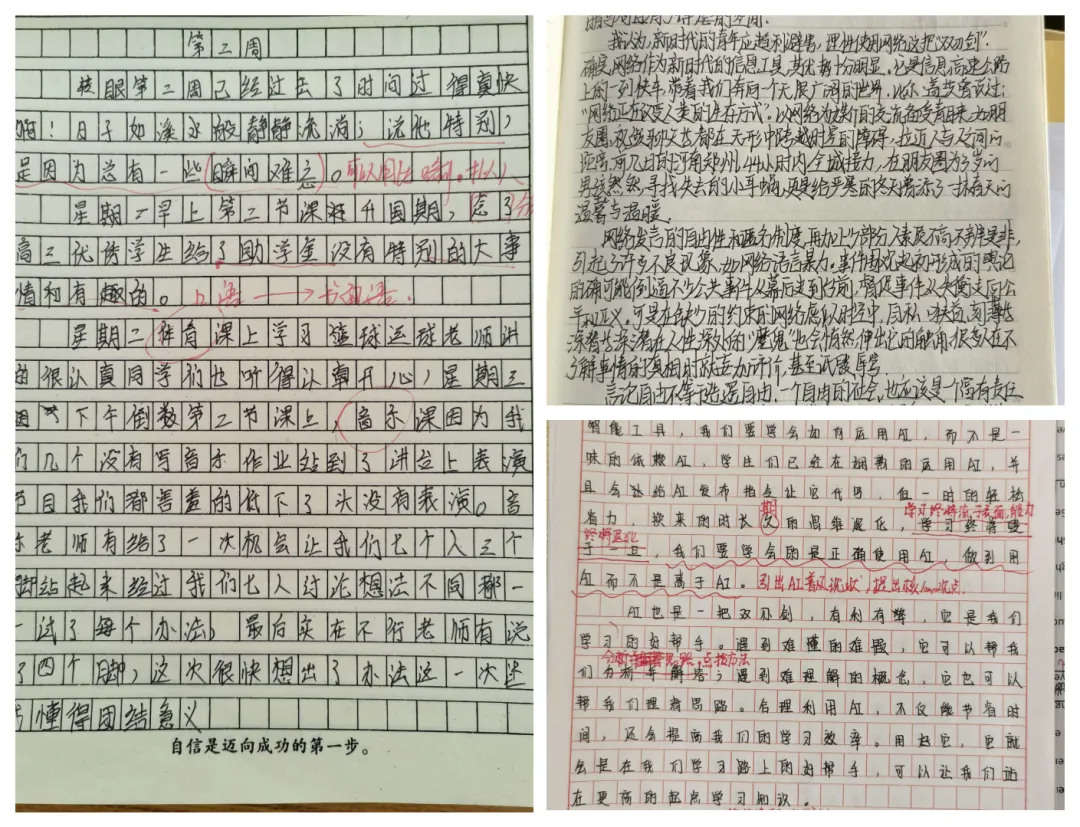 第二周
转眼第二周已经过去了时间过得真快
啊！日子如溪水般静静流淌；流他特别，
是因为总有一些瞬间难忘。
星期二早上第二节课
高三优秀学生给了助学金没有特别的大事
情和有趣的。
口语 书面语.
星期二体育课上学习篮球运球老师讲
的很认真同学们也听得认真开心，星期三
下午倒数第二节课上，音乐课因为我
们几个没有写音乐作业站到了讲台上表演
节目我们都害羞的低下了头没有表演。音
乐老师有给了一次机会让我们七个人三个
脚站起来经过我们七人讨论想法不同都一
一试了每个办法，最后实在不行老师有说
了四个脚，这次很快想出了办法这一次还
懂得团结意义
自信是迈向成功的第一步。
我认为，新时代的青年应趋利避害，理性使用网络这把“双刃剑”.
确实,网络作为新时代的信息工具,其优势十分明显。它是信息高速公路
上的一列快车,带着我们奔向一个无限广阔的世界。比尔·盖茨曾说过：
“网络正在改变人类的生存方式”。以网络为媒介的交流备受青睐,
拉近人与人之间的
距离.前几日的河南郑州,4小时内全城接力,在朋友圈为3岁的
男孩然然寻找失去的小耳蜗,更是给严寒的冬天增添了一抹春天的
温馨与温暖。
网络发言的自由性和匿名制度,再加上少部分人素质不高不辨是非，
引起了许多不良现象,如网络语言暴力。事件围观起初形成的舆论
的确可能倒逼不少公共事件从幕后走到台前,督促事件从失衡走向公
平和正义。可是在缺少的约束的网络虚拟时空中,
深潜在人性深处的“魔鬼”也会悄然伸出它的触角.很多人在不
了解事情的真相时就妄加评价,甚至谩骂辱骂.
言论自由不等于造谣自由.一个自由的社会,也应该是个富有责任
智能工具，我们要学会如何运用AI，而不是一
味的依赖AI，学生们已经在娴熟的运用AI，并
且会让给AI发布指令让它代写，但一时的轻松
省力，换来的时长久的思维退化，学习终将毁
期
学习终将流于表面,能力
终将退化
于一旦，我们要学会的是正确使用AI，做到用
AI而不是高于AI。引出AI普及现状,提出核心观点.
AI也是一把双刃剑，有利有弊，它是我们
学习的好帮手。遇到难懂的难题，它可以帮我
们分析并解答；遇到难理解的概念，它也可以
帮我们理清思路。合理利用AI，不仅能节省时
间，还会提高我们的学习效率。用好它，它就
会是在我们学习路上的好帮手，可以让我们站
在更高的起点学习知识。